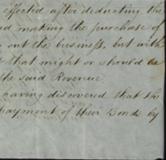 effected after deducting the
and making the purchase of
out the business, but with
that might or should be
the said Revenue
having discovered that the
payment of their Bond by